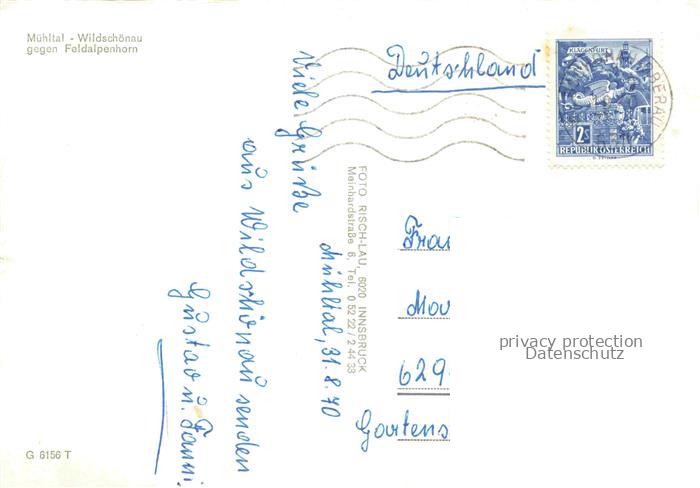 Mühltal - Wildschönau
gegen Feldalpenhorn
Mühltal, 31.8.70
Viele Grüße
aus Wildschönau senden
Gustav u. Fanni
G 6156 T
FOTO RISCH-LAU, 6020 INNSBRUCK
Meinhardstraße 6, Tel. 0 52 22 / 2 44 33
Deutschland
KLAGENFURT
2S
REPUBLIK ÖSTERREICH
Frau
629
Gartens
privacy protection
Datenschutz